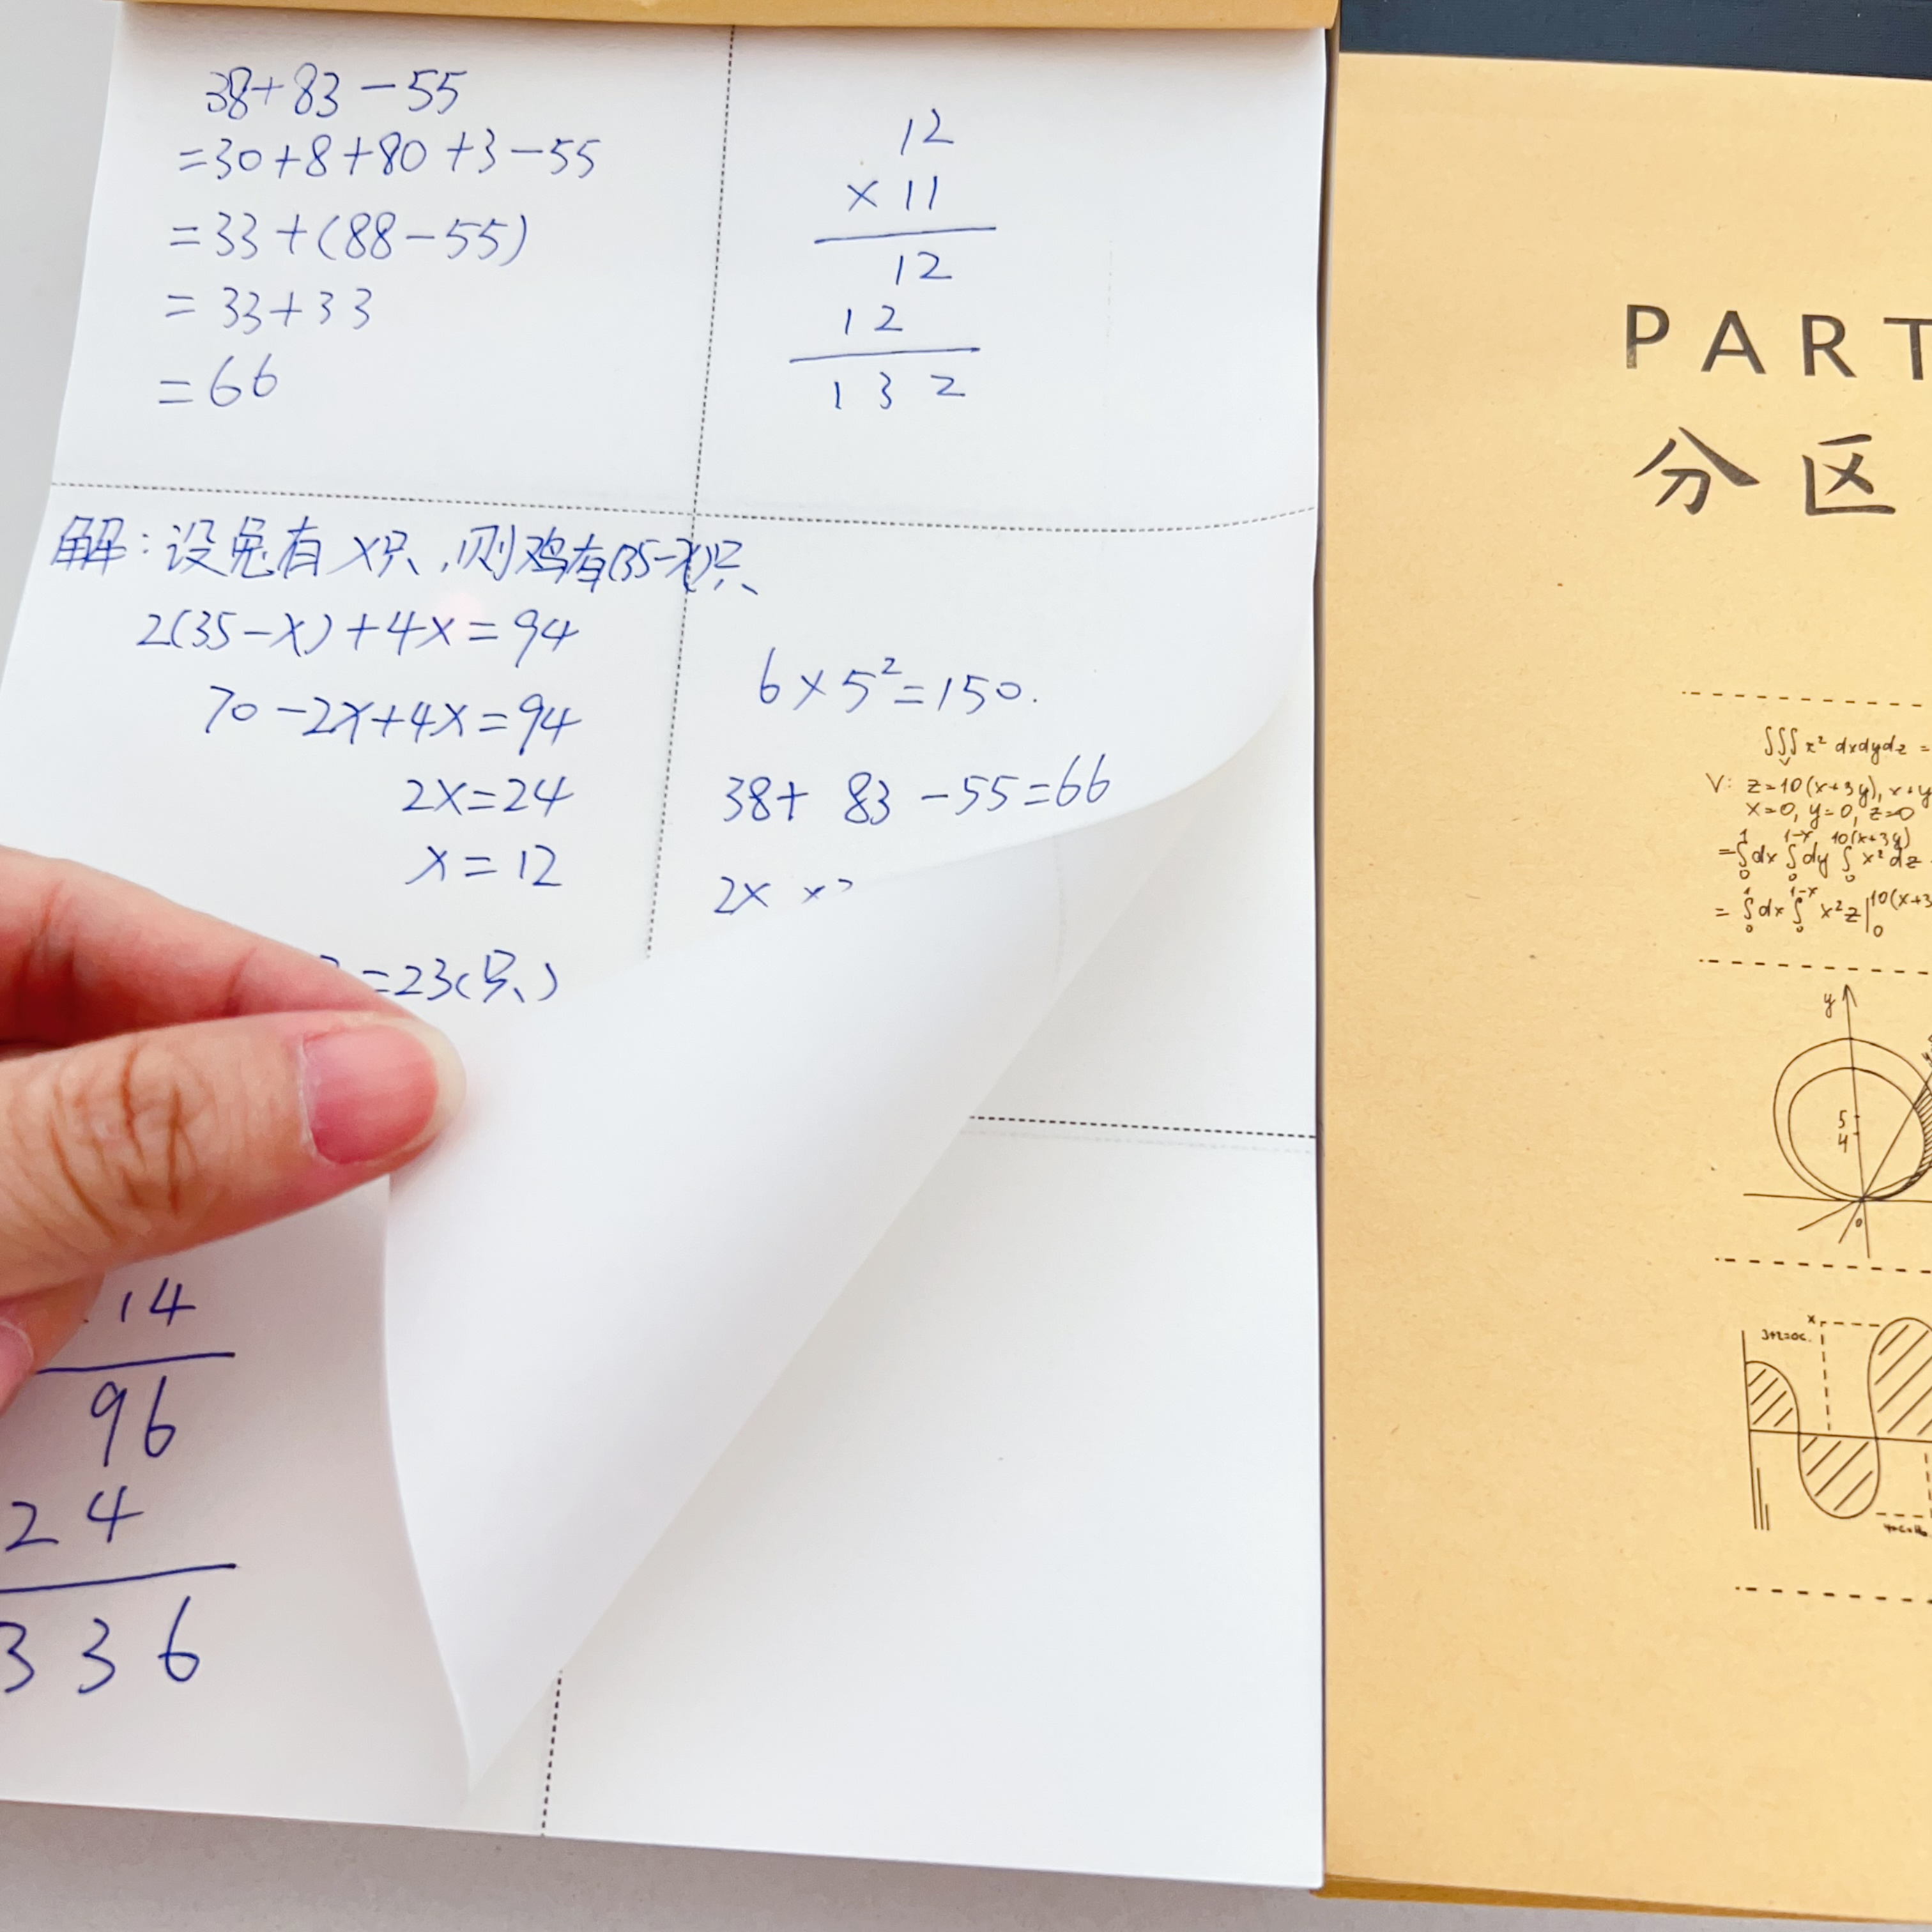 38+83-55
=30+8+80+3-55
=33+(88-55)
=33+33
=66
12
×11
12
12
132
解:设兔有x只,则鸡有(35-x)只
2(35-x)+4x=94
70-2x+4x=94
2x=24
x=12
=23(只)
6×5²=150.
38+83-55=66
2x
14
96
24
336
PART
分区
∭x²dxdydz=
V
V: z=10(x+3y), x+y
x=0, y=0, z=0
=∫₀¹dx∫₀¹⁻ˣdy∫₀¹⁰⁽ˣ⁺³ʸ⁾x²dz
=∫₀¹dx∫₀¹⁻ˣx²z|₀
y
5
4
0
x